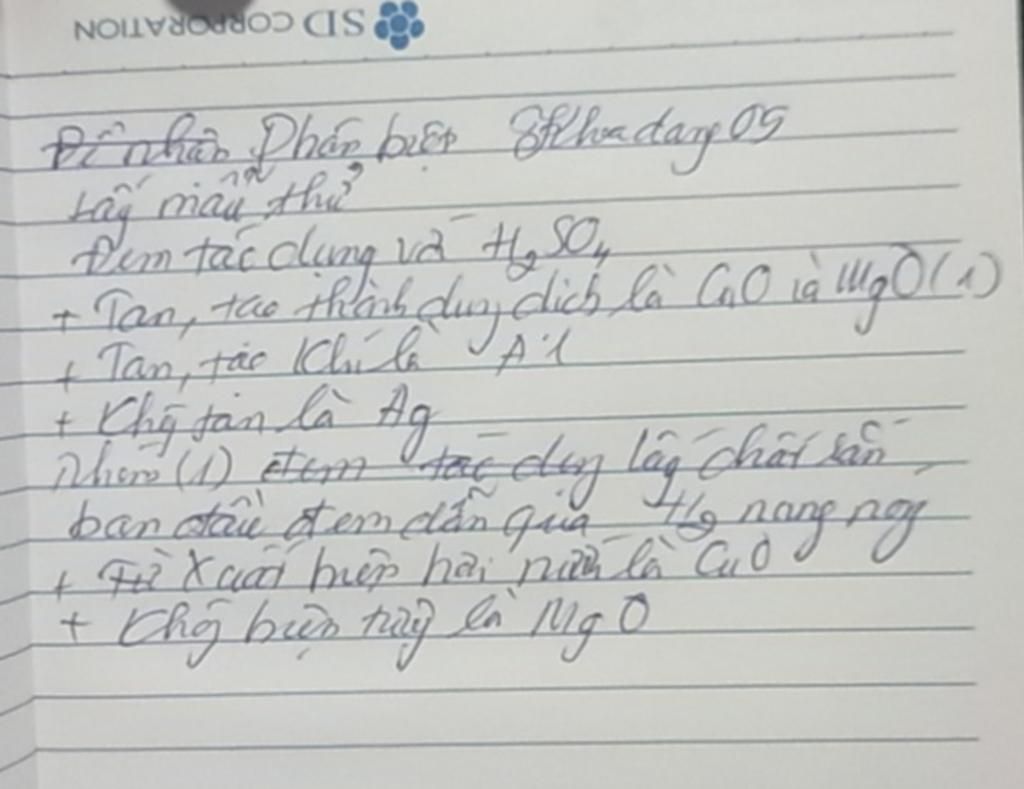 SD CORPORATION
Để nhận Phân biệt
Lấy mẫu thử
Đem tác dụng và H2SO4
+ Tan, tạo thành dung dịch là CuO và MgO (1)
+ Tan, tạo khí là Al
+ Khg tan là Ag
Nhóm (1) đem tác dụng lấy chất rắn
ban đầu đem dẫn qua H2 nang nóg
+ Xuất hiện hơi nước là CuO
+ Khg hiện tượg là MgO